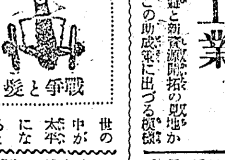 業
と新資源開拓の見地か
この助成策に出づる模樣
戰爭と髮
世の
中が
太平
にな